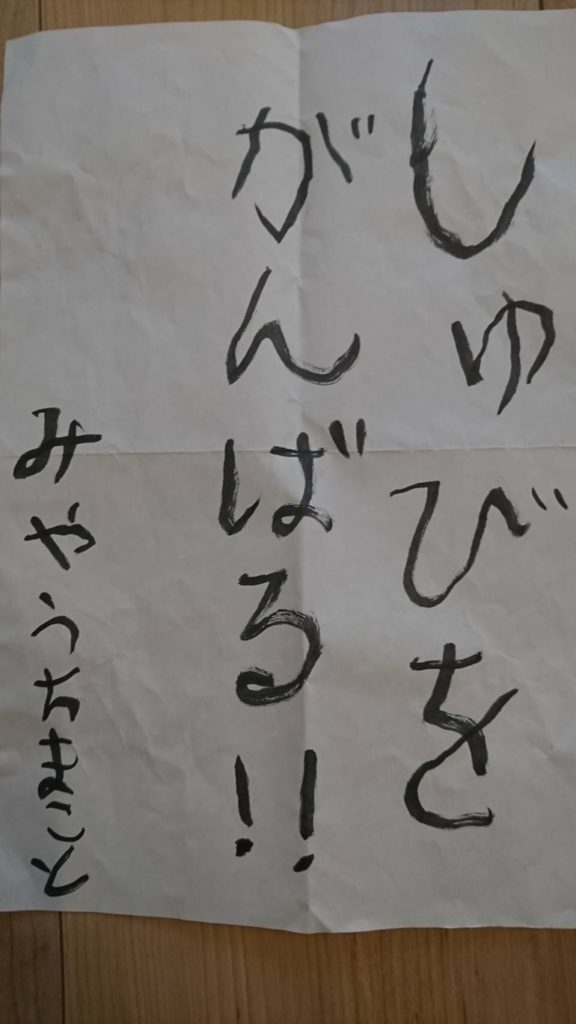 しゅびを
がんばる!!
みやうちせいと